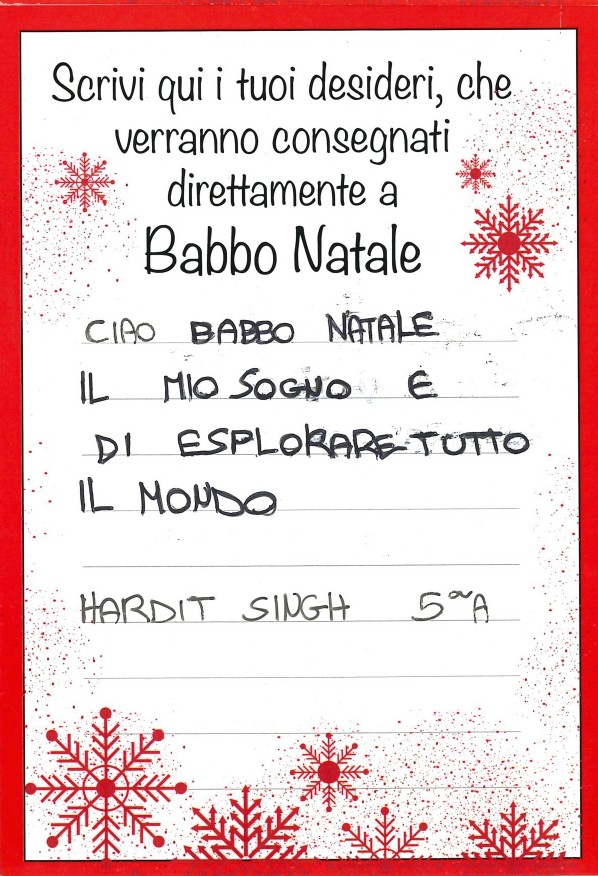 Scrivi qui i tuoi desideri, che
verranno consegnati
direttamente a
Babbo Natale
CIAO BABBO NATALE
IL MIO SOGNO E
DI ESPLORARE TUTTO
IL MONDO
HARDIT SINGH 5ªA